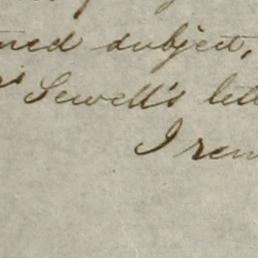 ned subject,
rs Sewell's lett
I rem